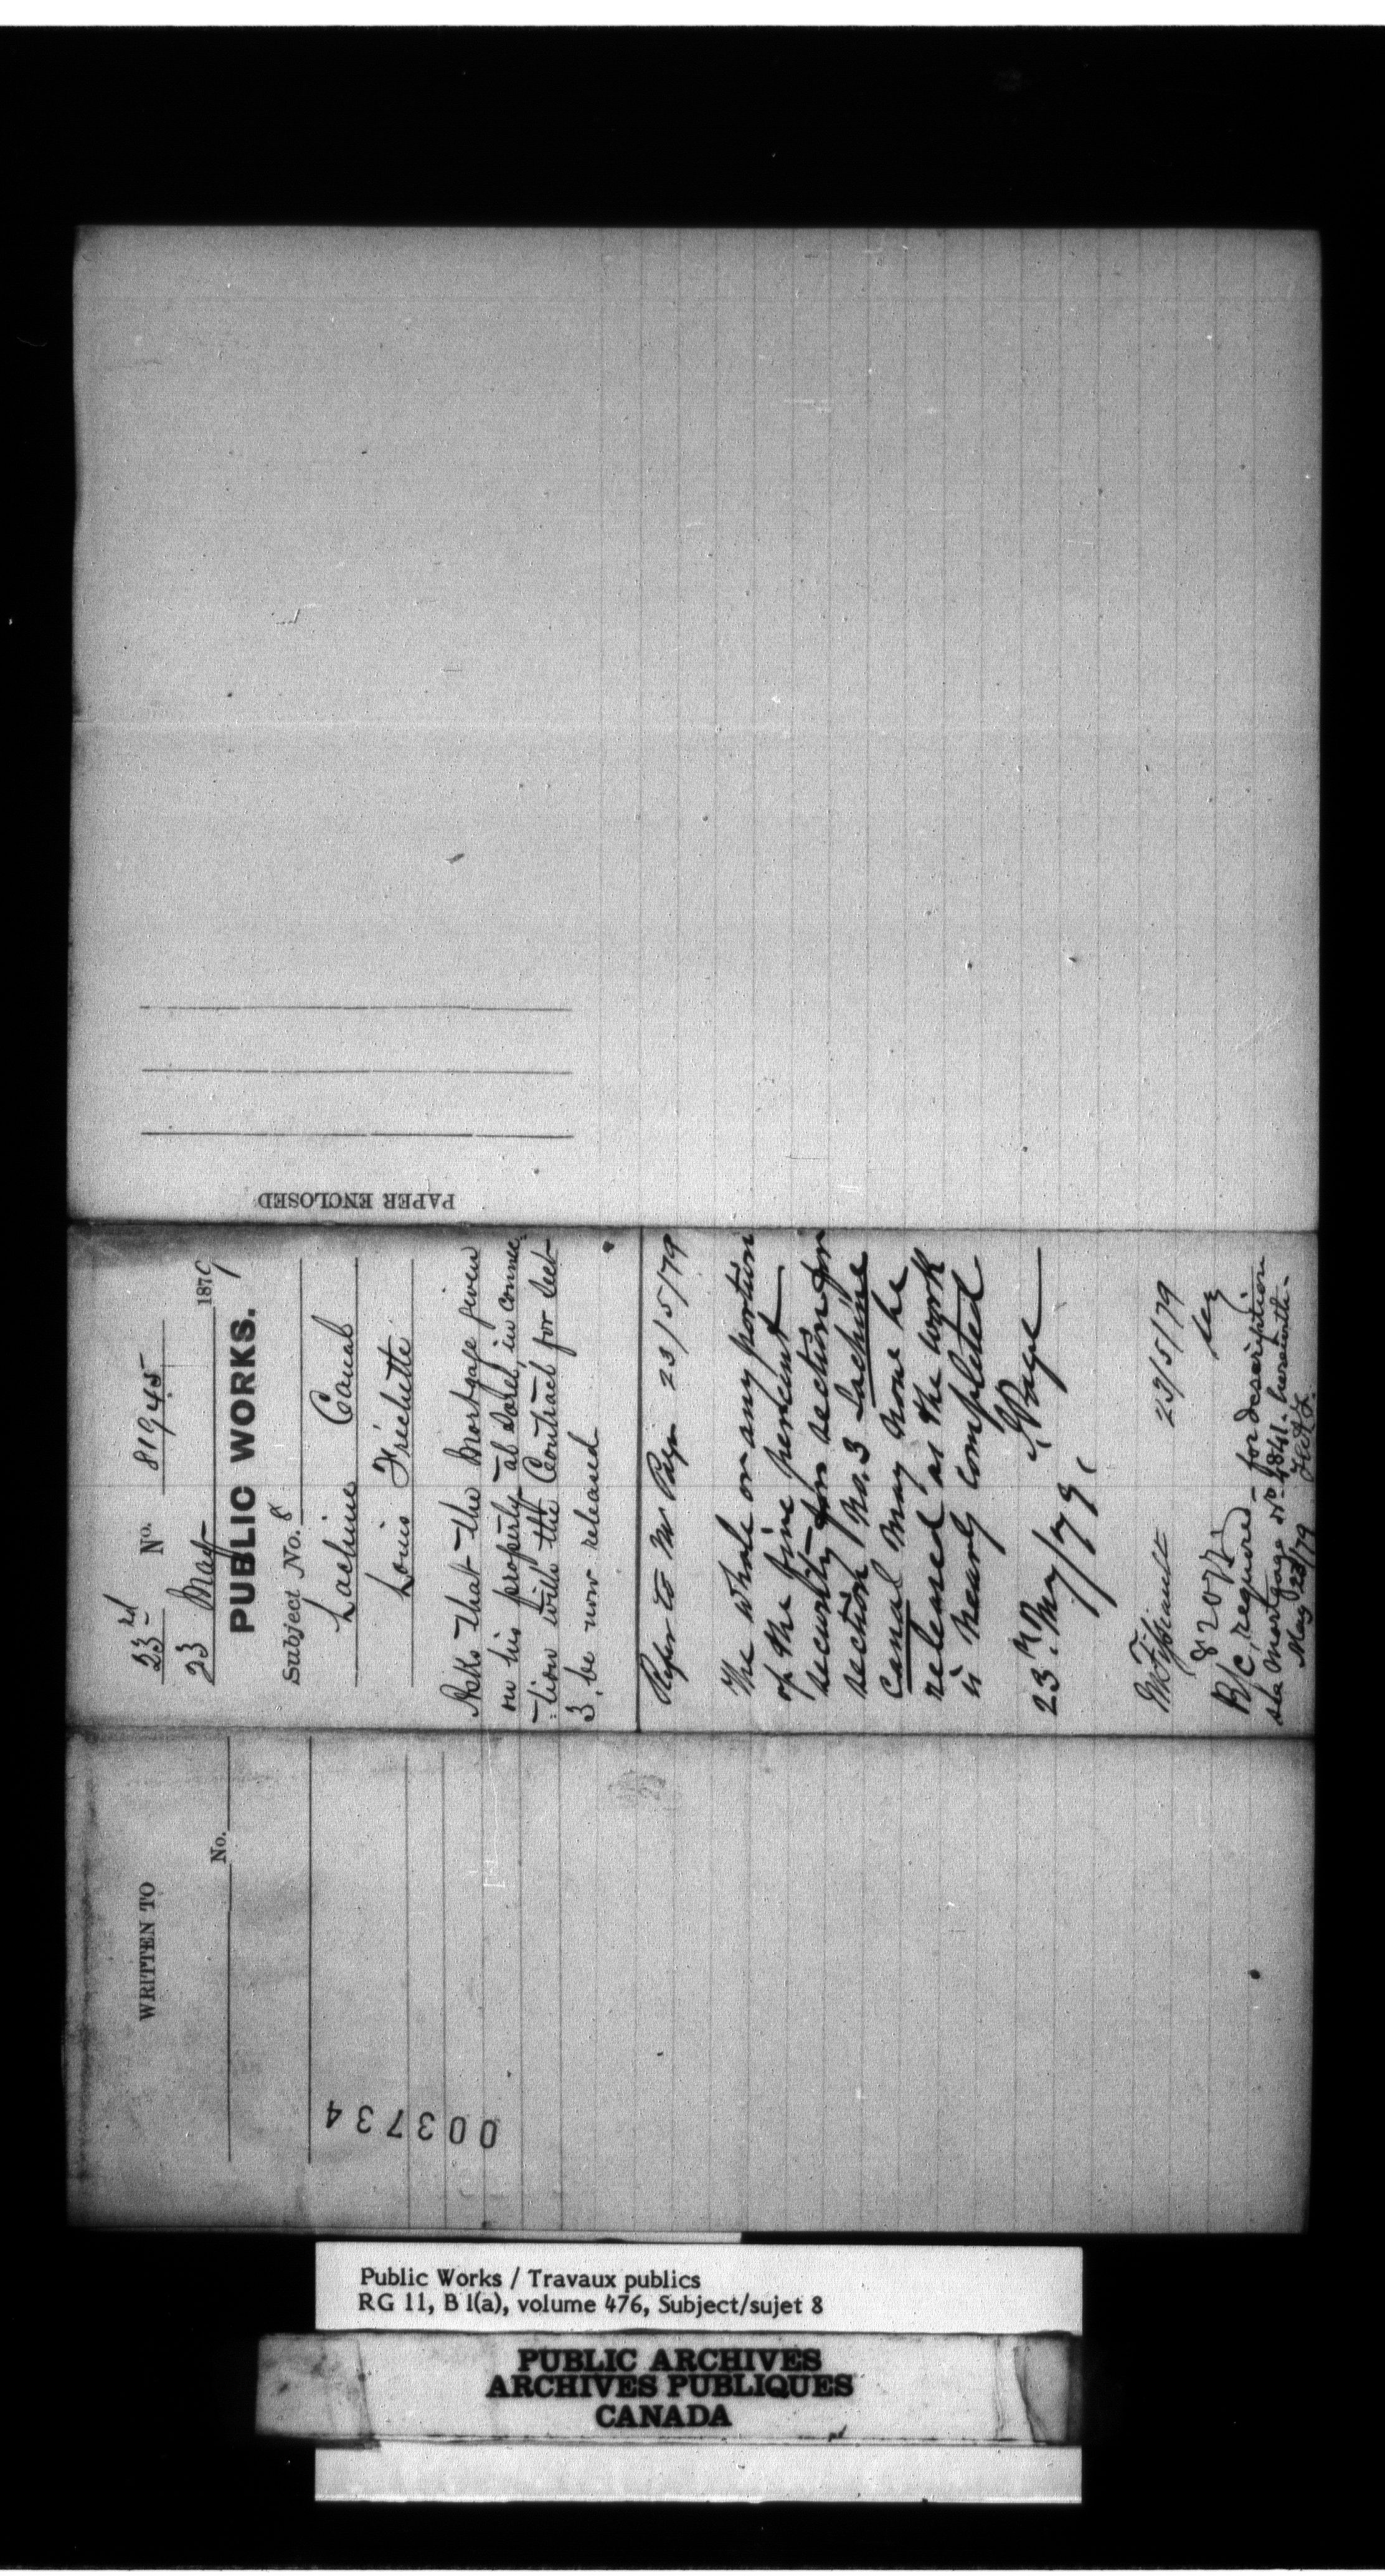 23rd No. 81945
23 May 1879
PUBLIC WORKS.
Subject No. 8
Lachine Canal
Louis Fréchette
Asks that the Mortgage given
on his property at Sorel, in connec-
-tion with the Contract for Sect-
3, be now released
Refer to Mr Page 23/5/79
The whole or any portion
of the five percent
security for section for
section No. 3 Lachine
Canal may now be
released as the work
is nearly completed
J Page
23rd May/79
23/5/79
82072
B/C, required – for description
see Mortgage No. 4841. herewith.
May 23/79
PAPER ENCLOSED
WRITTEN TO
No.
003734
Public Works / Travaux publics
RG 11, B 1(a), volume 476, Subject/sujet 8
PUBLIC ARCHIVES
ARCHIVES PUBLIQUES
CANADA